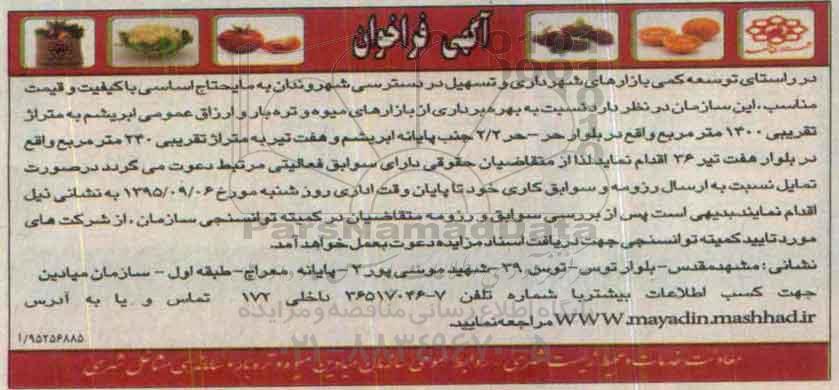 آگهی فراخوان
در راستای توسعه کمی بازارهای شهرداری و تسهیل در دسترسی شهروندان به مایحتاج اساسی با کیفیت و قیمت
مناسب ، این سازمان در نظر دارد نسبت به بهره برداری از بازارهای میوه و تره بار و ارزاق عمومی ابریشم به متراژ
تقریبی ۱۳۰۰ متر مربع واقع در بلوار حر – حر ۲/۲ جنب پایانه ابریشم و هفت تیر به متراژ تقریبی ۲۳۰ متر مربع واقع
در بلوار هفت تیر ۳۶ اقدام نماید.لذا از متقاضیان حقوقی دارای سوابق فعالیتی مرتبط دعوت می گردد درصورت
تمایل نسبت به ارسال رزومه و سوابق کاری خود تا پایان وقت اداری روز شنبه مورخ ۱۳۹۵/۰۹/۰۶ به نشانی ذیل
اقدام نمایند.بدیهی است پس از بررسی سوابق و رزومه متقاضیان در کمیته توانسنجی سازمان ، از شرکت های
مورد تایید کمیته توانسنجی جهت دریافت اسناد مزایده دعوت بعمل خواهد آمد.
نشانی : مشهدمقدس – بلوار توس – توس ۳۹ – شهید موسی پور ۲ – پایانه معراج – طبقه اول – سازمان میادین
جهت کسب اطلاعات بیشتر با شماره تلفن ۷-۳۶۵۱۷۰۴۶ داخلی ۱۷۲ تماس و یا به آدرس
WWW.mayadin.mashhad.ir مراجعه نمایید.
۱/۹۵۲۵۶۸۸۵
ParsNamadData
پایگاه اطلاع رسانی مناقصه و مزایده
۰۲۱-۸۸۳۴۹۶۷۰-۵